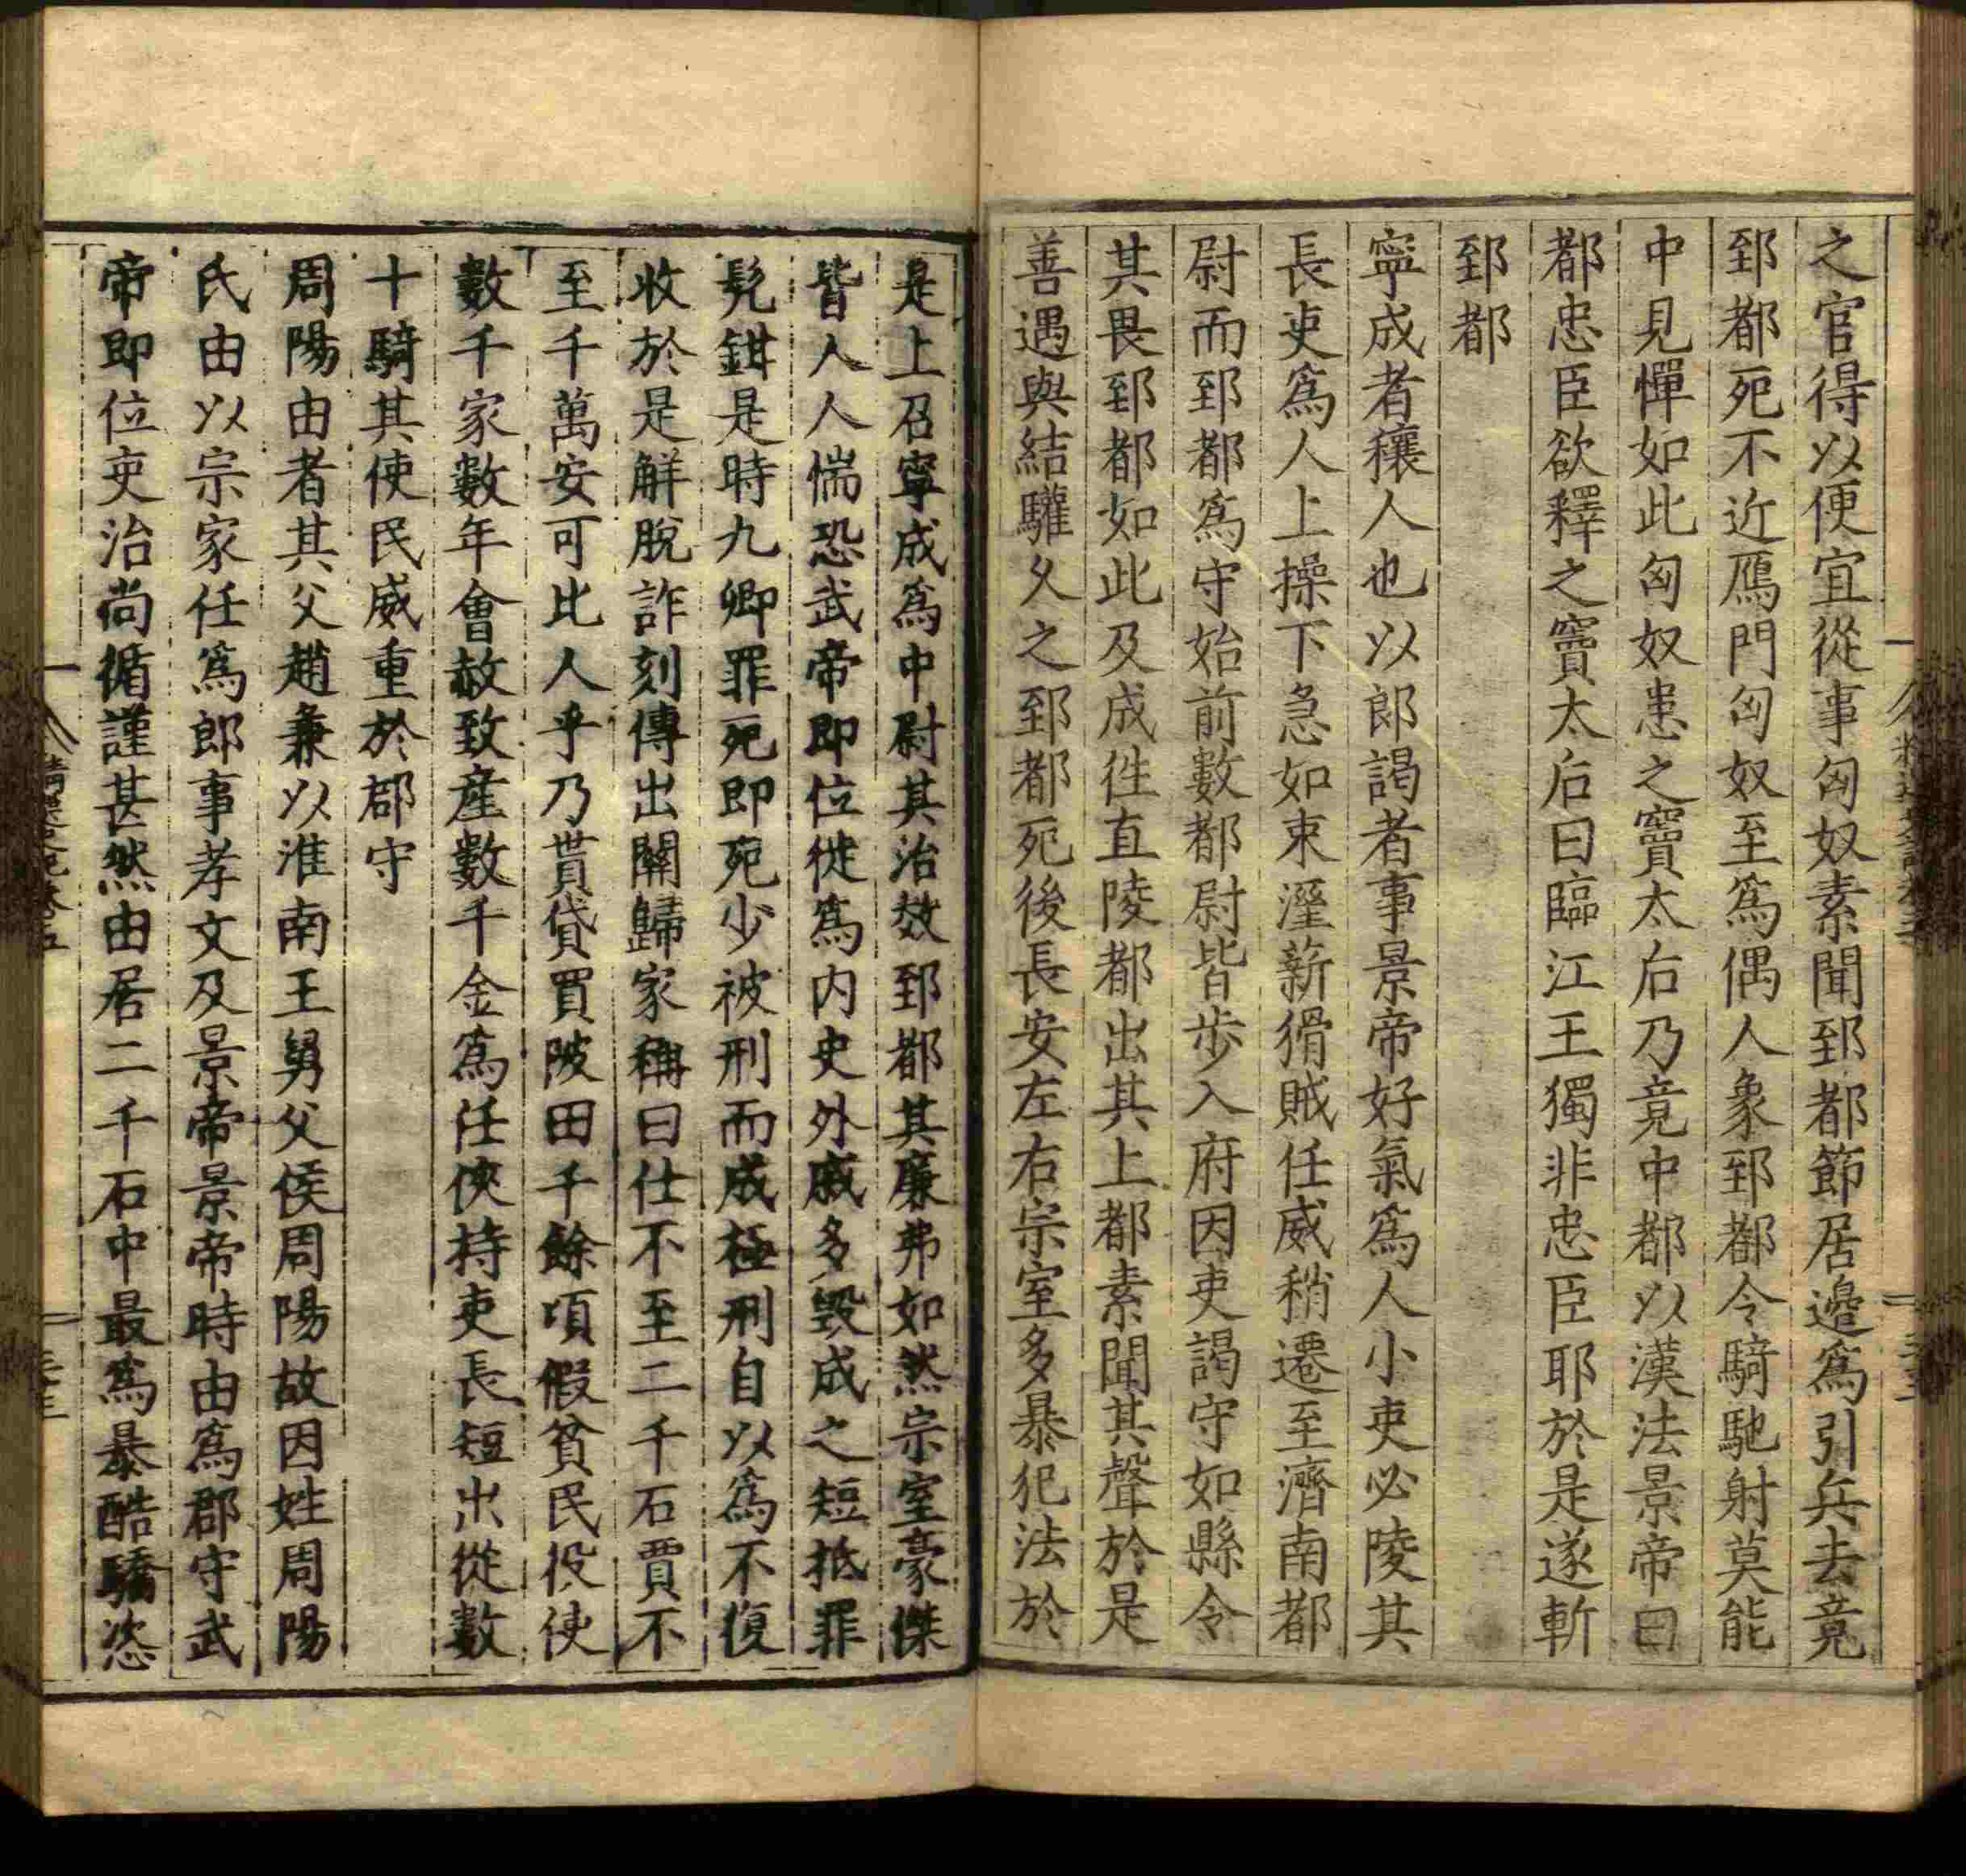 之官得以便宜從事匈奴素聞郅都節居邊爲引兵去竟
郅都死不近鴈門匈奴至爲偶人象郅都令騎馳射莫能
中見憚如此匈奴患之竇太后乃竟中都以漢法景帝曰
都忠臣欲釋之竇太后曰臨江王獨非忠臣耶於是遂斬
郅都
寧成者穰人也以郎謁者事景帝好氣爲人小吏必陵其
長吏爲人上操下急如束溼薪猾賊任威稍遷至濟南都
尉而郅都爲守始前數都尉皆步入府因吏謁守如縣令
其畏郅都如此及成徃直陵都出其上都素聞其聲於是
善遇與結驩久之郅都死後長安左右宗室多暴犯法於
是上召寧成爲中尉其治效郅都其廉弗如然宗室豪傑
皆人人惴恐武帝即位徙爲内史外戚多毀成之短抵罪
髡鉗是時九卿罪死即死少被刑而成極刑自以爲不復
收於是解脫詐刻傳出關歸家稱曰仕不至二千石賈不
至千萬安可比人乎乃貰貸買陂田千餘頃假貧民役使
數千家數年會赦致產數千金爲任俠持吏長短出從數
十騎其使民威重於郡守
周陽由者其父趙兼以淮南王舅父侯周陽故因姓周陽
氏由以宗家任爲郎事孝文及景帝景帝時由爲郡守武
帝即位吏治尚循謹甚然由居二千石中最爲暴酷驕恣